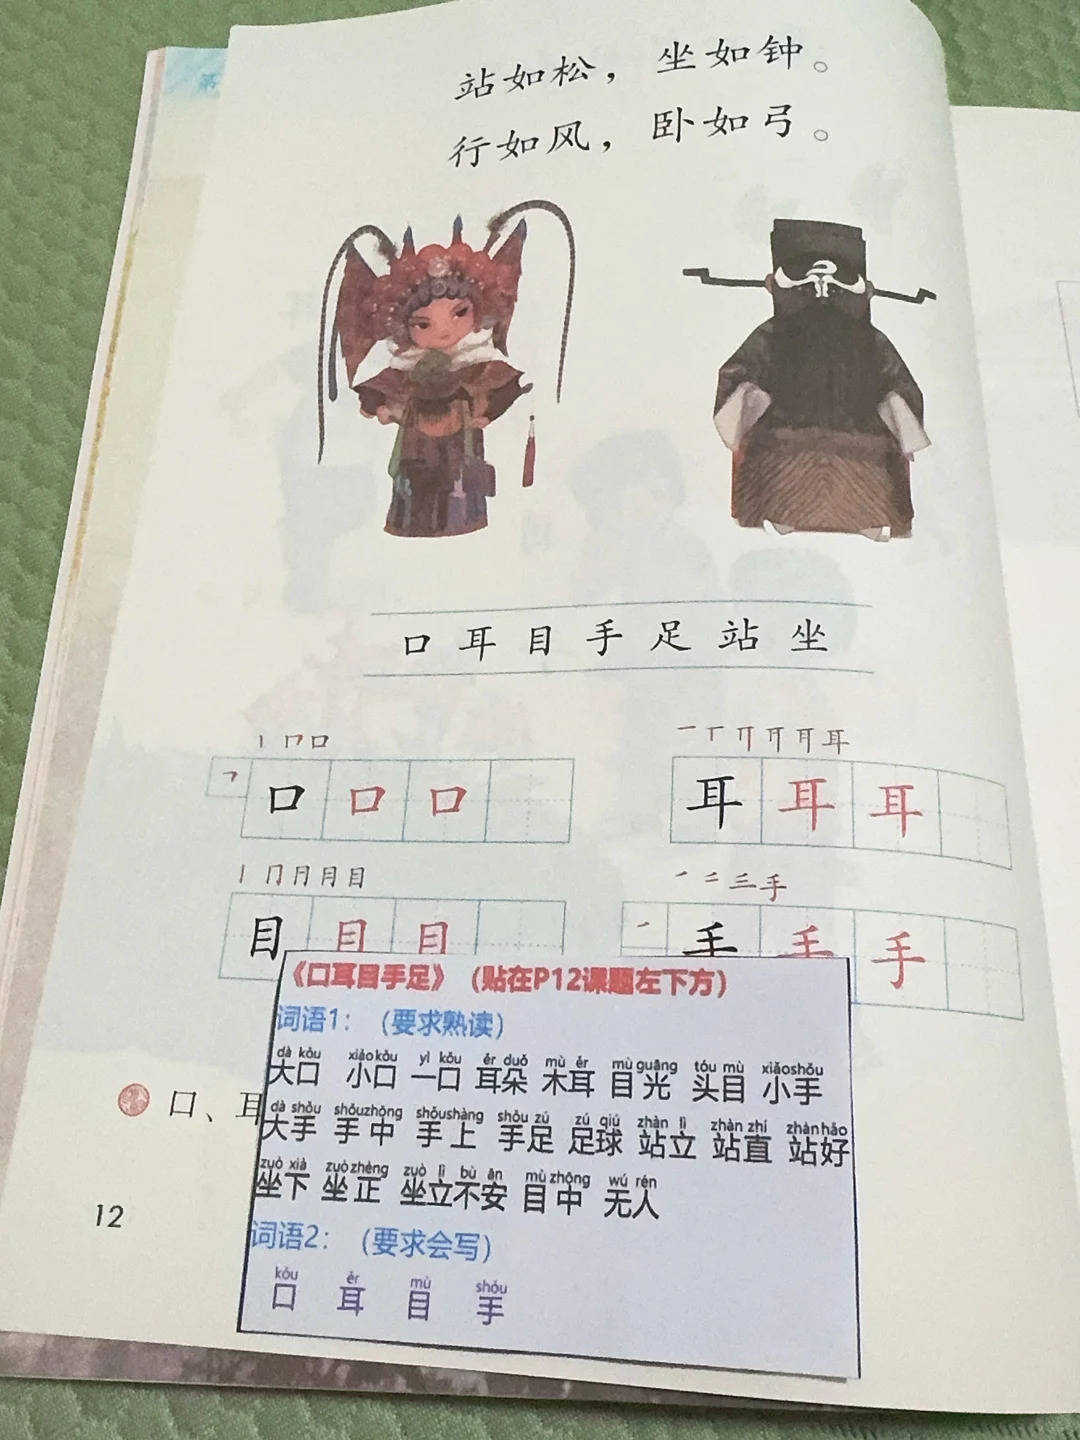 第
站如松，坐如钟。
行如风，卧如弓。
口 耳 目 手 足 站 坐
口 口 口
耳 耳 耳
目 目 目
手 手 手
《口耳目手足》（贴在P12课题左下方）
词语1：（要求熟读）
dà kǒu xiǎo kǒu yì kǒu ěr duǒ mù ěr mù guāng tóu mù xiǎo shǒu
大口 小口 一口 耳朵 木耳 目光 头目 小手
dà shǒu shǒu zhōng shǒu shàng shǒu zú zú qiú zhàn lì zhàn zhí zhàn hǎo
大手 手中 手上 手足 足球 站立 站直 站好
zuò xià zuò zhèng zuò lì bù ān mù zhōng wú rén
坐下 坐正 坐立不安 目中 无人
词语2：（要求会写）
kǒu ěr mù shǒu
口 耳 目 手
口、耳
12